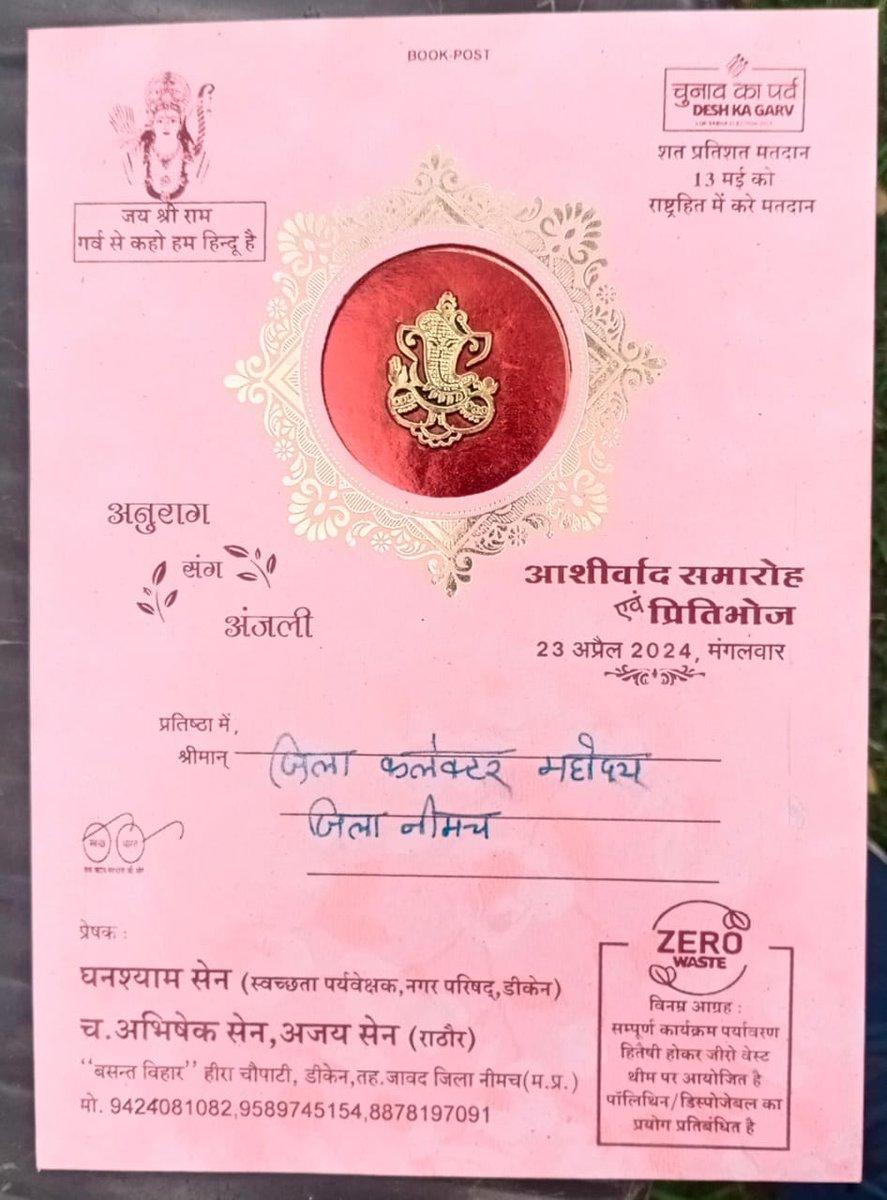 BOOK-POST
जय श्री राम
गर्व से कहो हम हिन्दू है
चुनाव का पर्व
DESH KA GARV
शत प्रतिशत मतदान
13 मई को
राष्ट्रहित में करे मतदान
अनुराग
संग
अंजली
आशीर्वाद समारोह
एवं प्रितिभोज
23 अप्रैल 2024, मंगलवार
प्रतिष्ठा में,
श्रीमान् जिला कलेक्टर महोदय
जिला नीमच
स्वच्छ भारत
प्रेषक :
घनश्याम सेन (स्वच्छता पर्यवेक्षक,नगर परिषद्,डीकेन)
च.अभिषेक सेन,अजय सेन (राठौर)
"बसन्त विहार" हीरा चौपाटी, डीकेन,तह.जावद जिला नीमच(म.प्र.)
मो. 9424081082,9589745154,8878197091
ZERO
WASTE
विनम्र आग्रह :
सम्पूर्ण कार्यक्रम पर्यावरण
हितैषी होकर जीरो वेस्ट
थीम पर आयोजित है
पॉलिथिन/डिस्पोजेबल का
प्रयोग प्रतिबंधित है